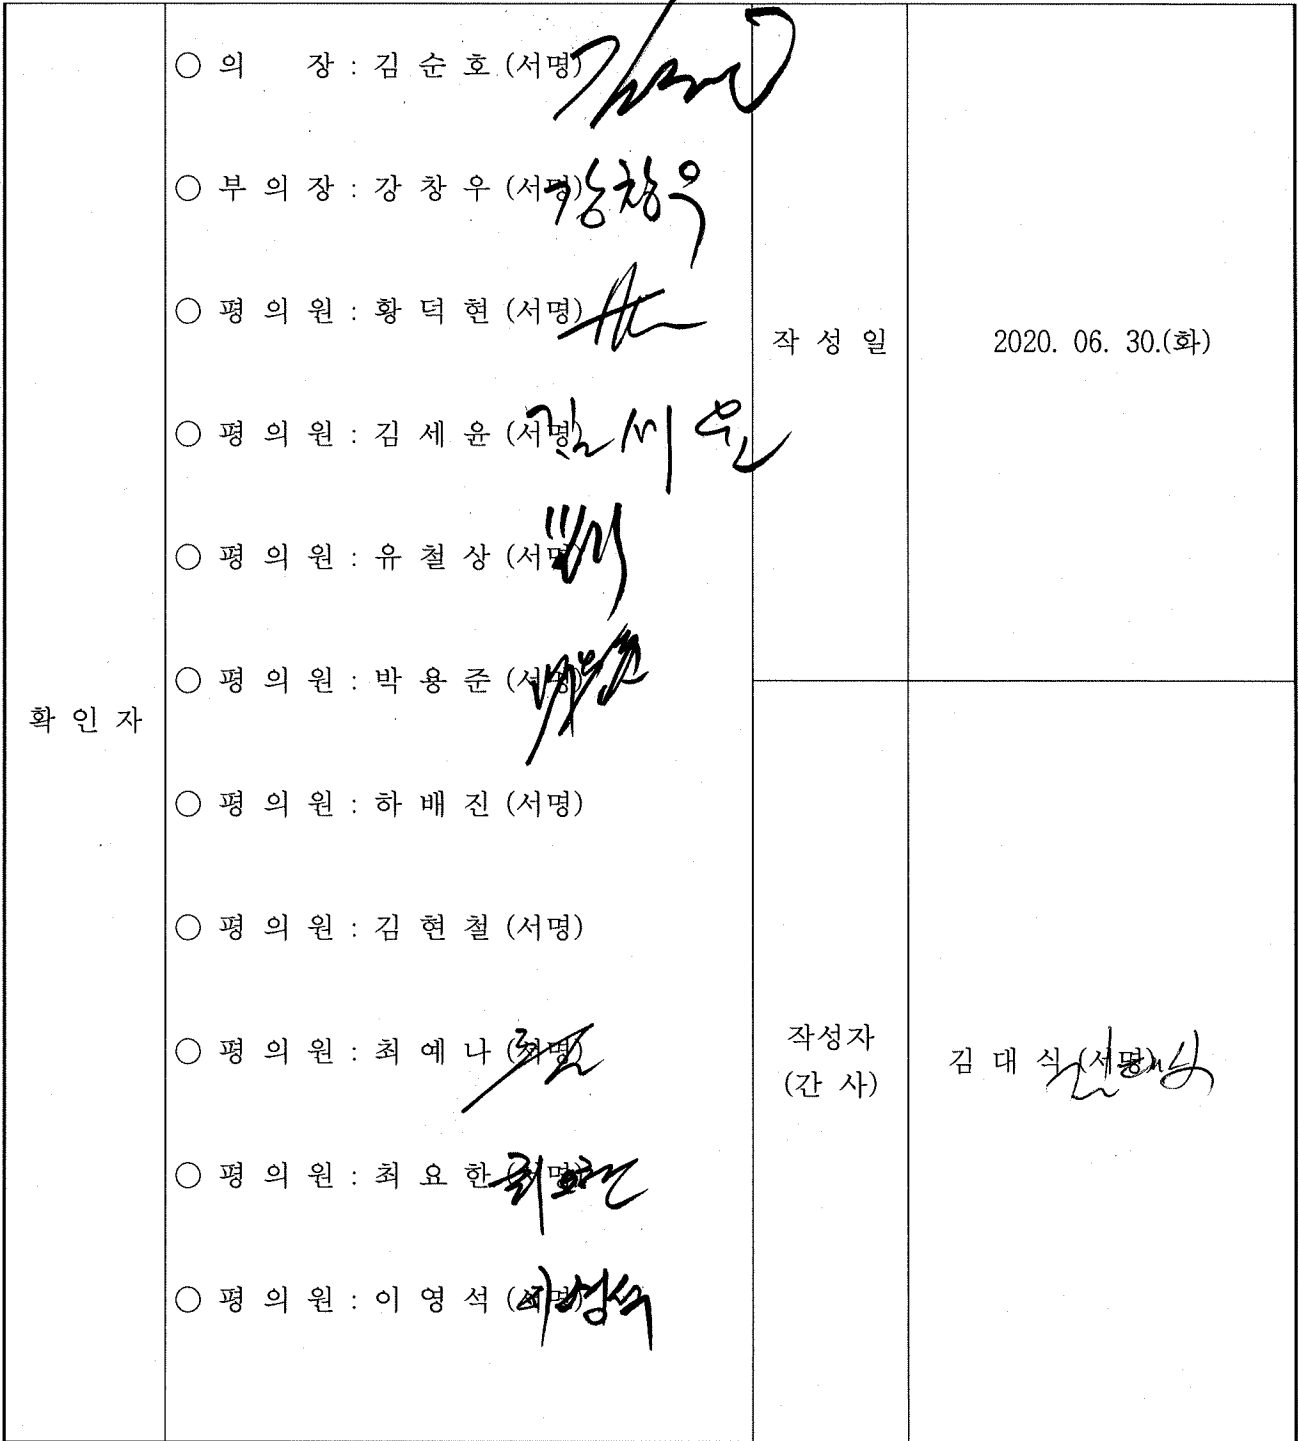 확 인 자
○ 의 장 : 김 순 호 (서명)
○ 부 의 장 : 강 창 우 (서명) 강창우
○ 평 의 원 : 황 덕 현 (서명)
○ 평 의 원 : 김 세 윤 (서명) 김세윤
○ 평 의 원 : 유 철 상 (서명)
○ 평 의 원 : 박 용 준 (서명)
○ 평 의 원 : 하 배 진 (서명)
○ 평 의 원 : 김 현 철 (서명)
○ 평 의 원 : 최 예 나 (서명)
○ 평 의 원 : 최 요 한 (서명) 최요한
○ 평 의 원 : 이 영 석 (서명) 이영석
작 성 일
2020. 06. 30.(화)
작성자
(간 사)
김 대 식 (서명)